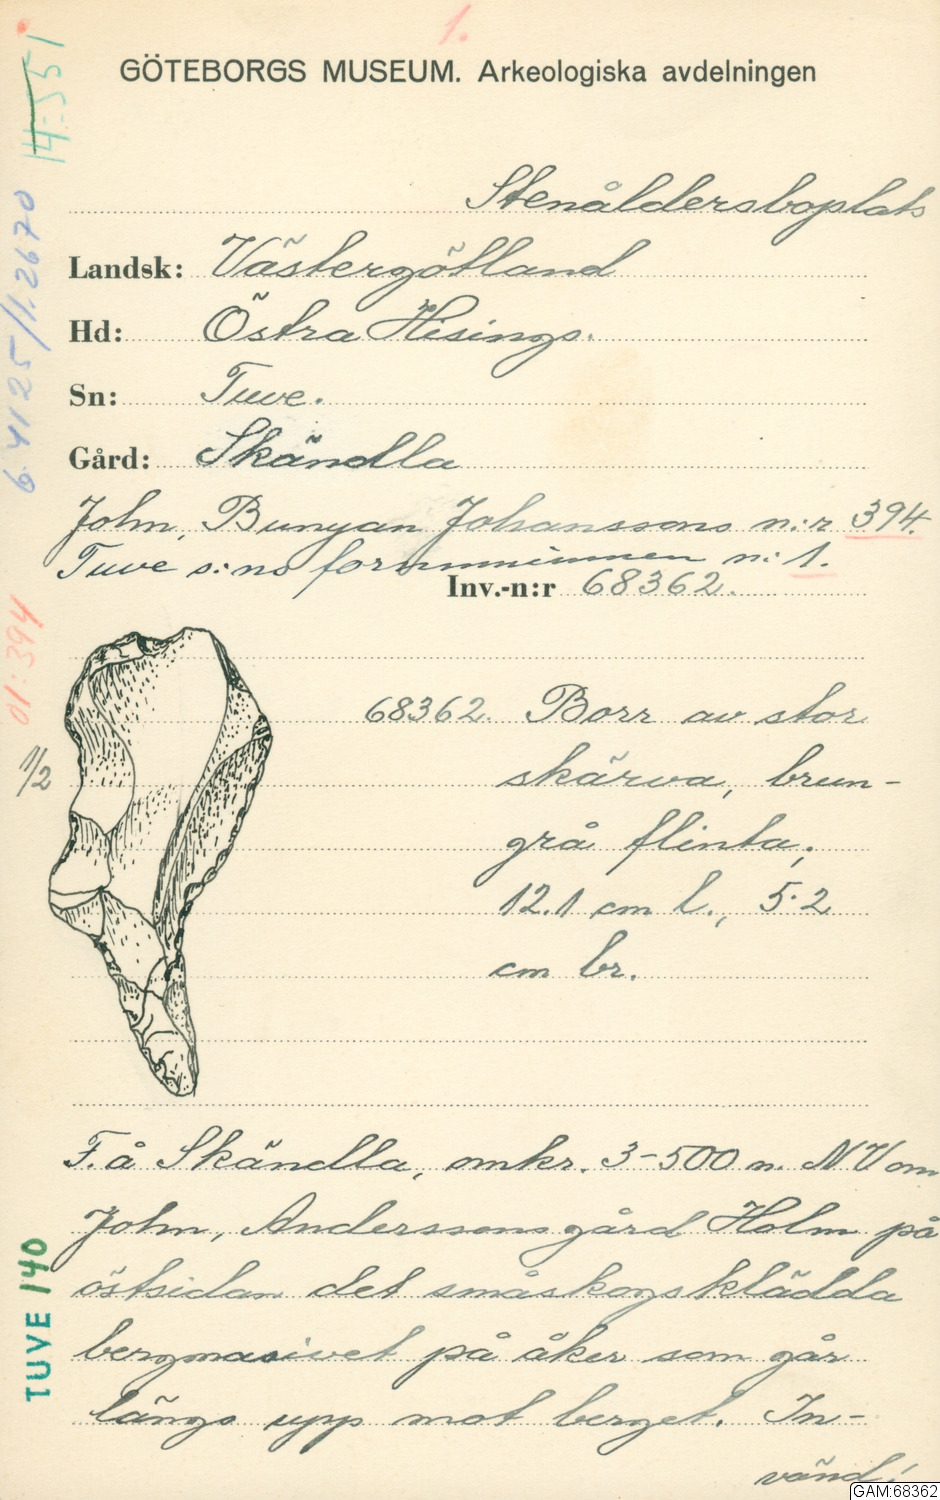 1.
14:551
GÖTEBORGS MUSEUM. Arkeologiska avdelningen
Stenåldersboplats
Landsk: Västergötland
Hd: Östra Hisings.
Sn: Tuve.
Gård: Skändla
John, Bunyan Johanssons n:r 394.
Tuve s:ns fornminnen n: 1.
Inv.-n:r 68362.
6.4125/1.2670
01:394
1/2
68362. Borr av stor
skärva, brun-
grå flinta,
12.1 cm l., 5.2
cm br.
F. å Skändla, omkr. 3-500 m. NV om
John, Anderssons gård Holm på
östsidan det småskogsklädda
bergmasivet på åker som går
längs upp mot berget. In-
vänd!
TUVE 140
GAM:68362